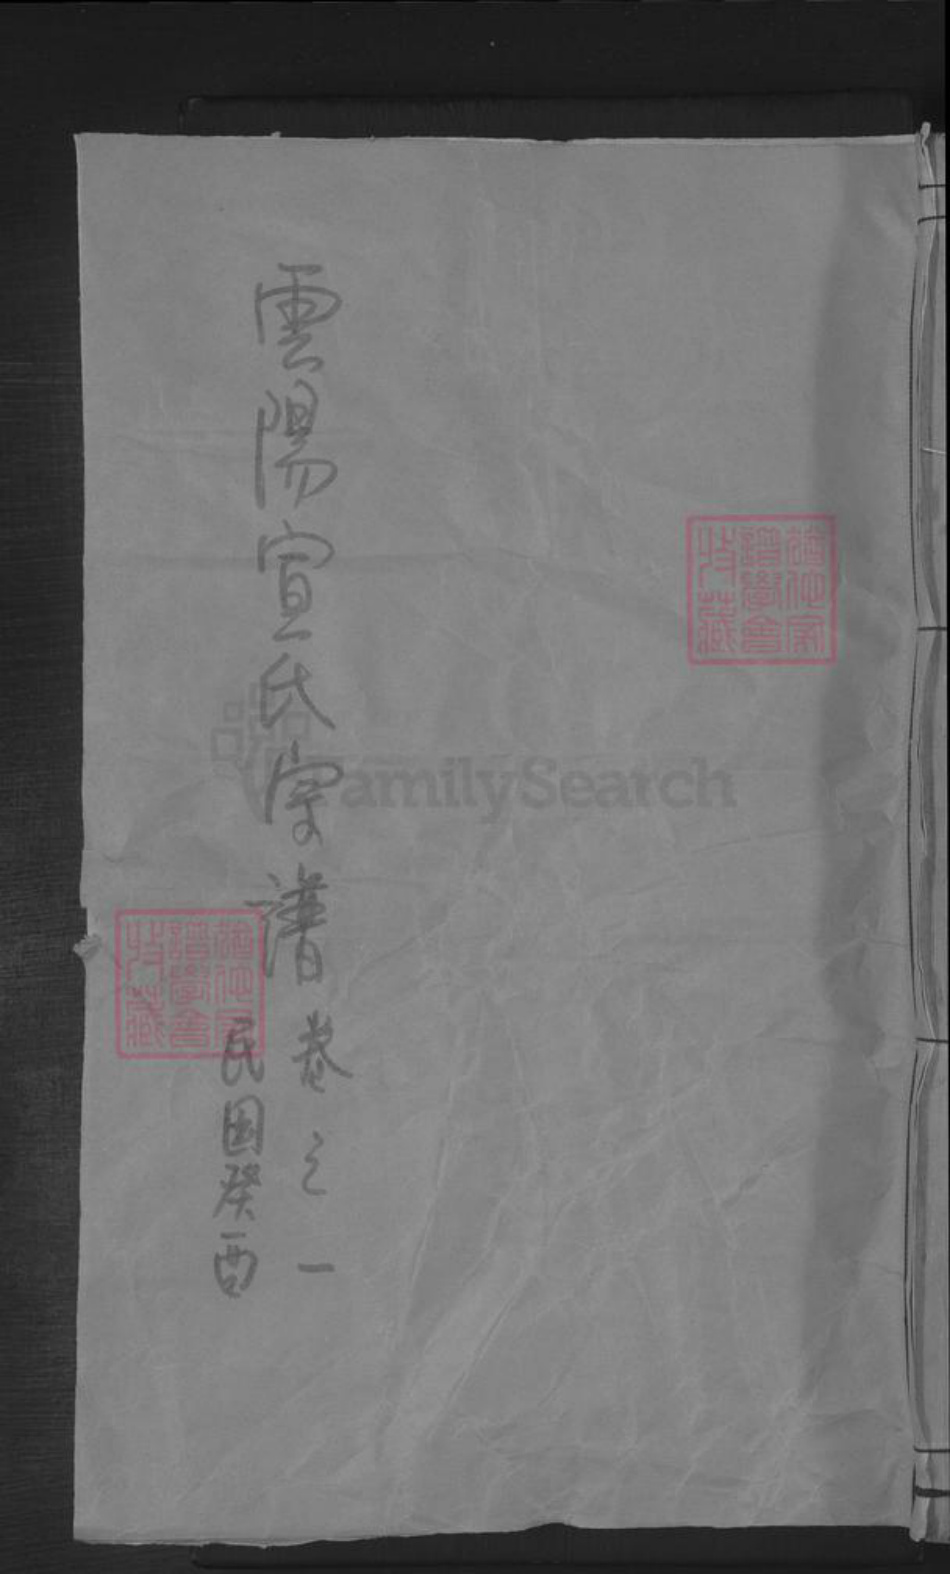 雲陽宣氏宗譜卷之一
民国癸酉
猶他家
譜學會
收藏
猶他家
譜學會
收藏
FamilySearch